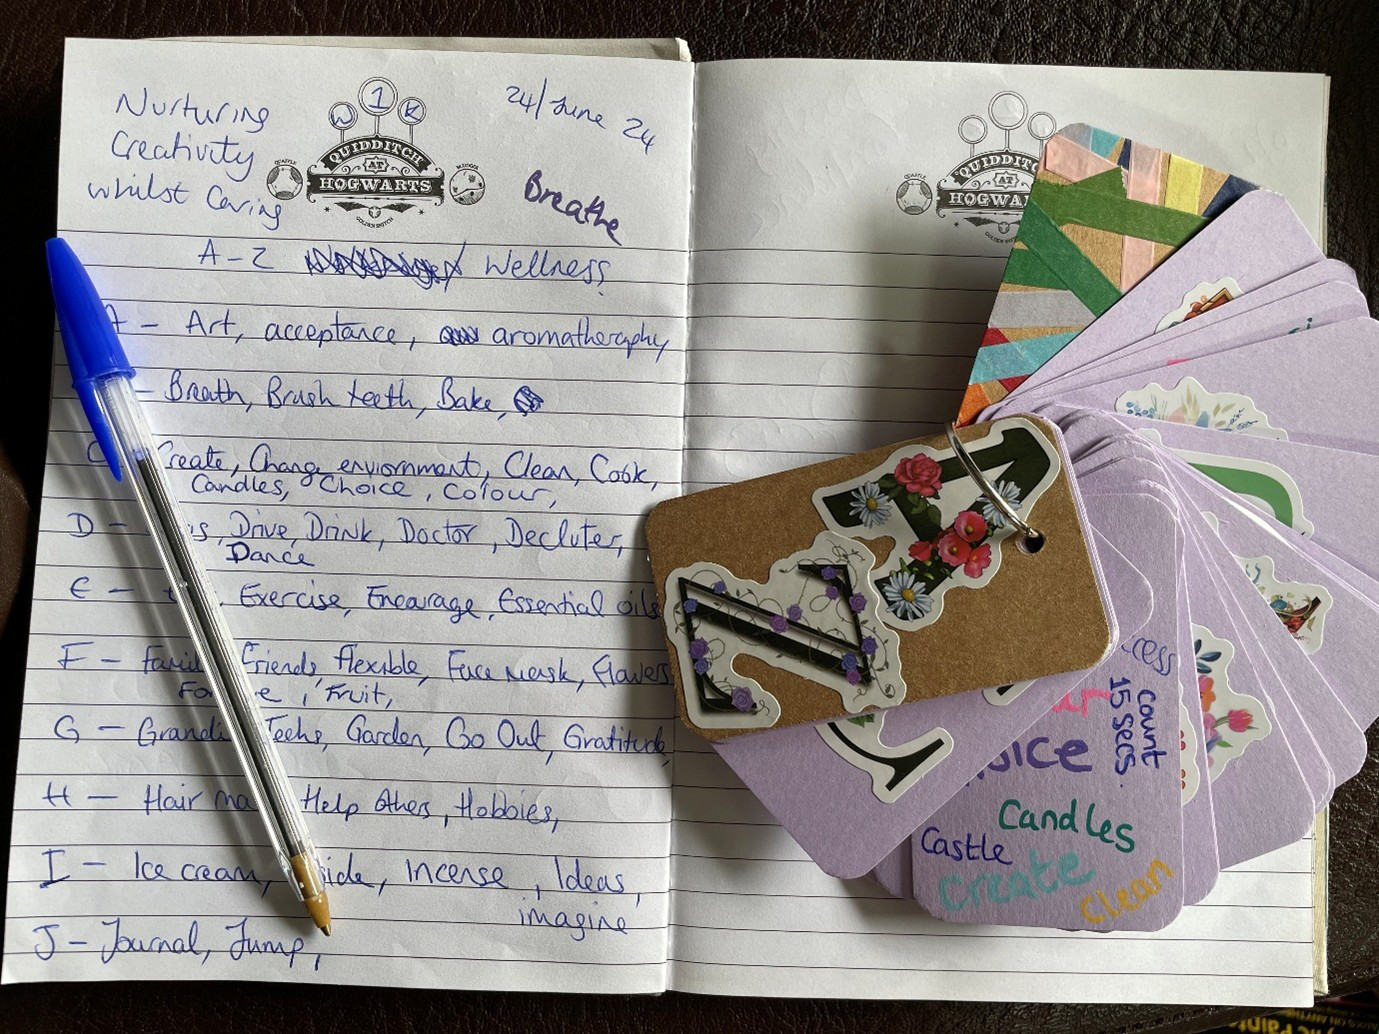 Nurturing
Creativity
whilst Caring
W 1 K
QUAFFLE
QUIDDITCH
AT
HOGWARTS
BLUDGER
GOLDEN SNITCH
24/June 24
Breathe
A-Z Wellness
A - Art, acceptance, aromatheraphy
- Breath, Brush teeth, Bake,
C Create, Change enviornment, Clean, Cook,
Candles, Choice, colour,
D - Drive, Drink, Doctor, Decluter,
Dance
E - Exercise, Encourage, Essential oils
F - Family Friends, Flexible, Face mask, flowers
Fruit,
G - Garden, Go Out, Gratitude,
H - Hair Help Others, Hobbies,
I - Ice cream, Incense, Ideas,
imagine
J - Journal, Jump,
QUAFFLE
QUIDDITCH
AT
HOGWAR
A
Z
count
15 secs.
Candles
Castle
create
clean